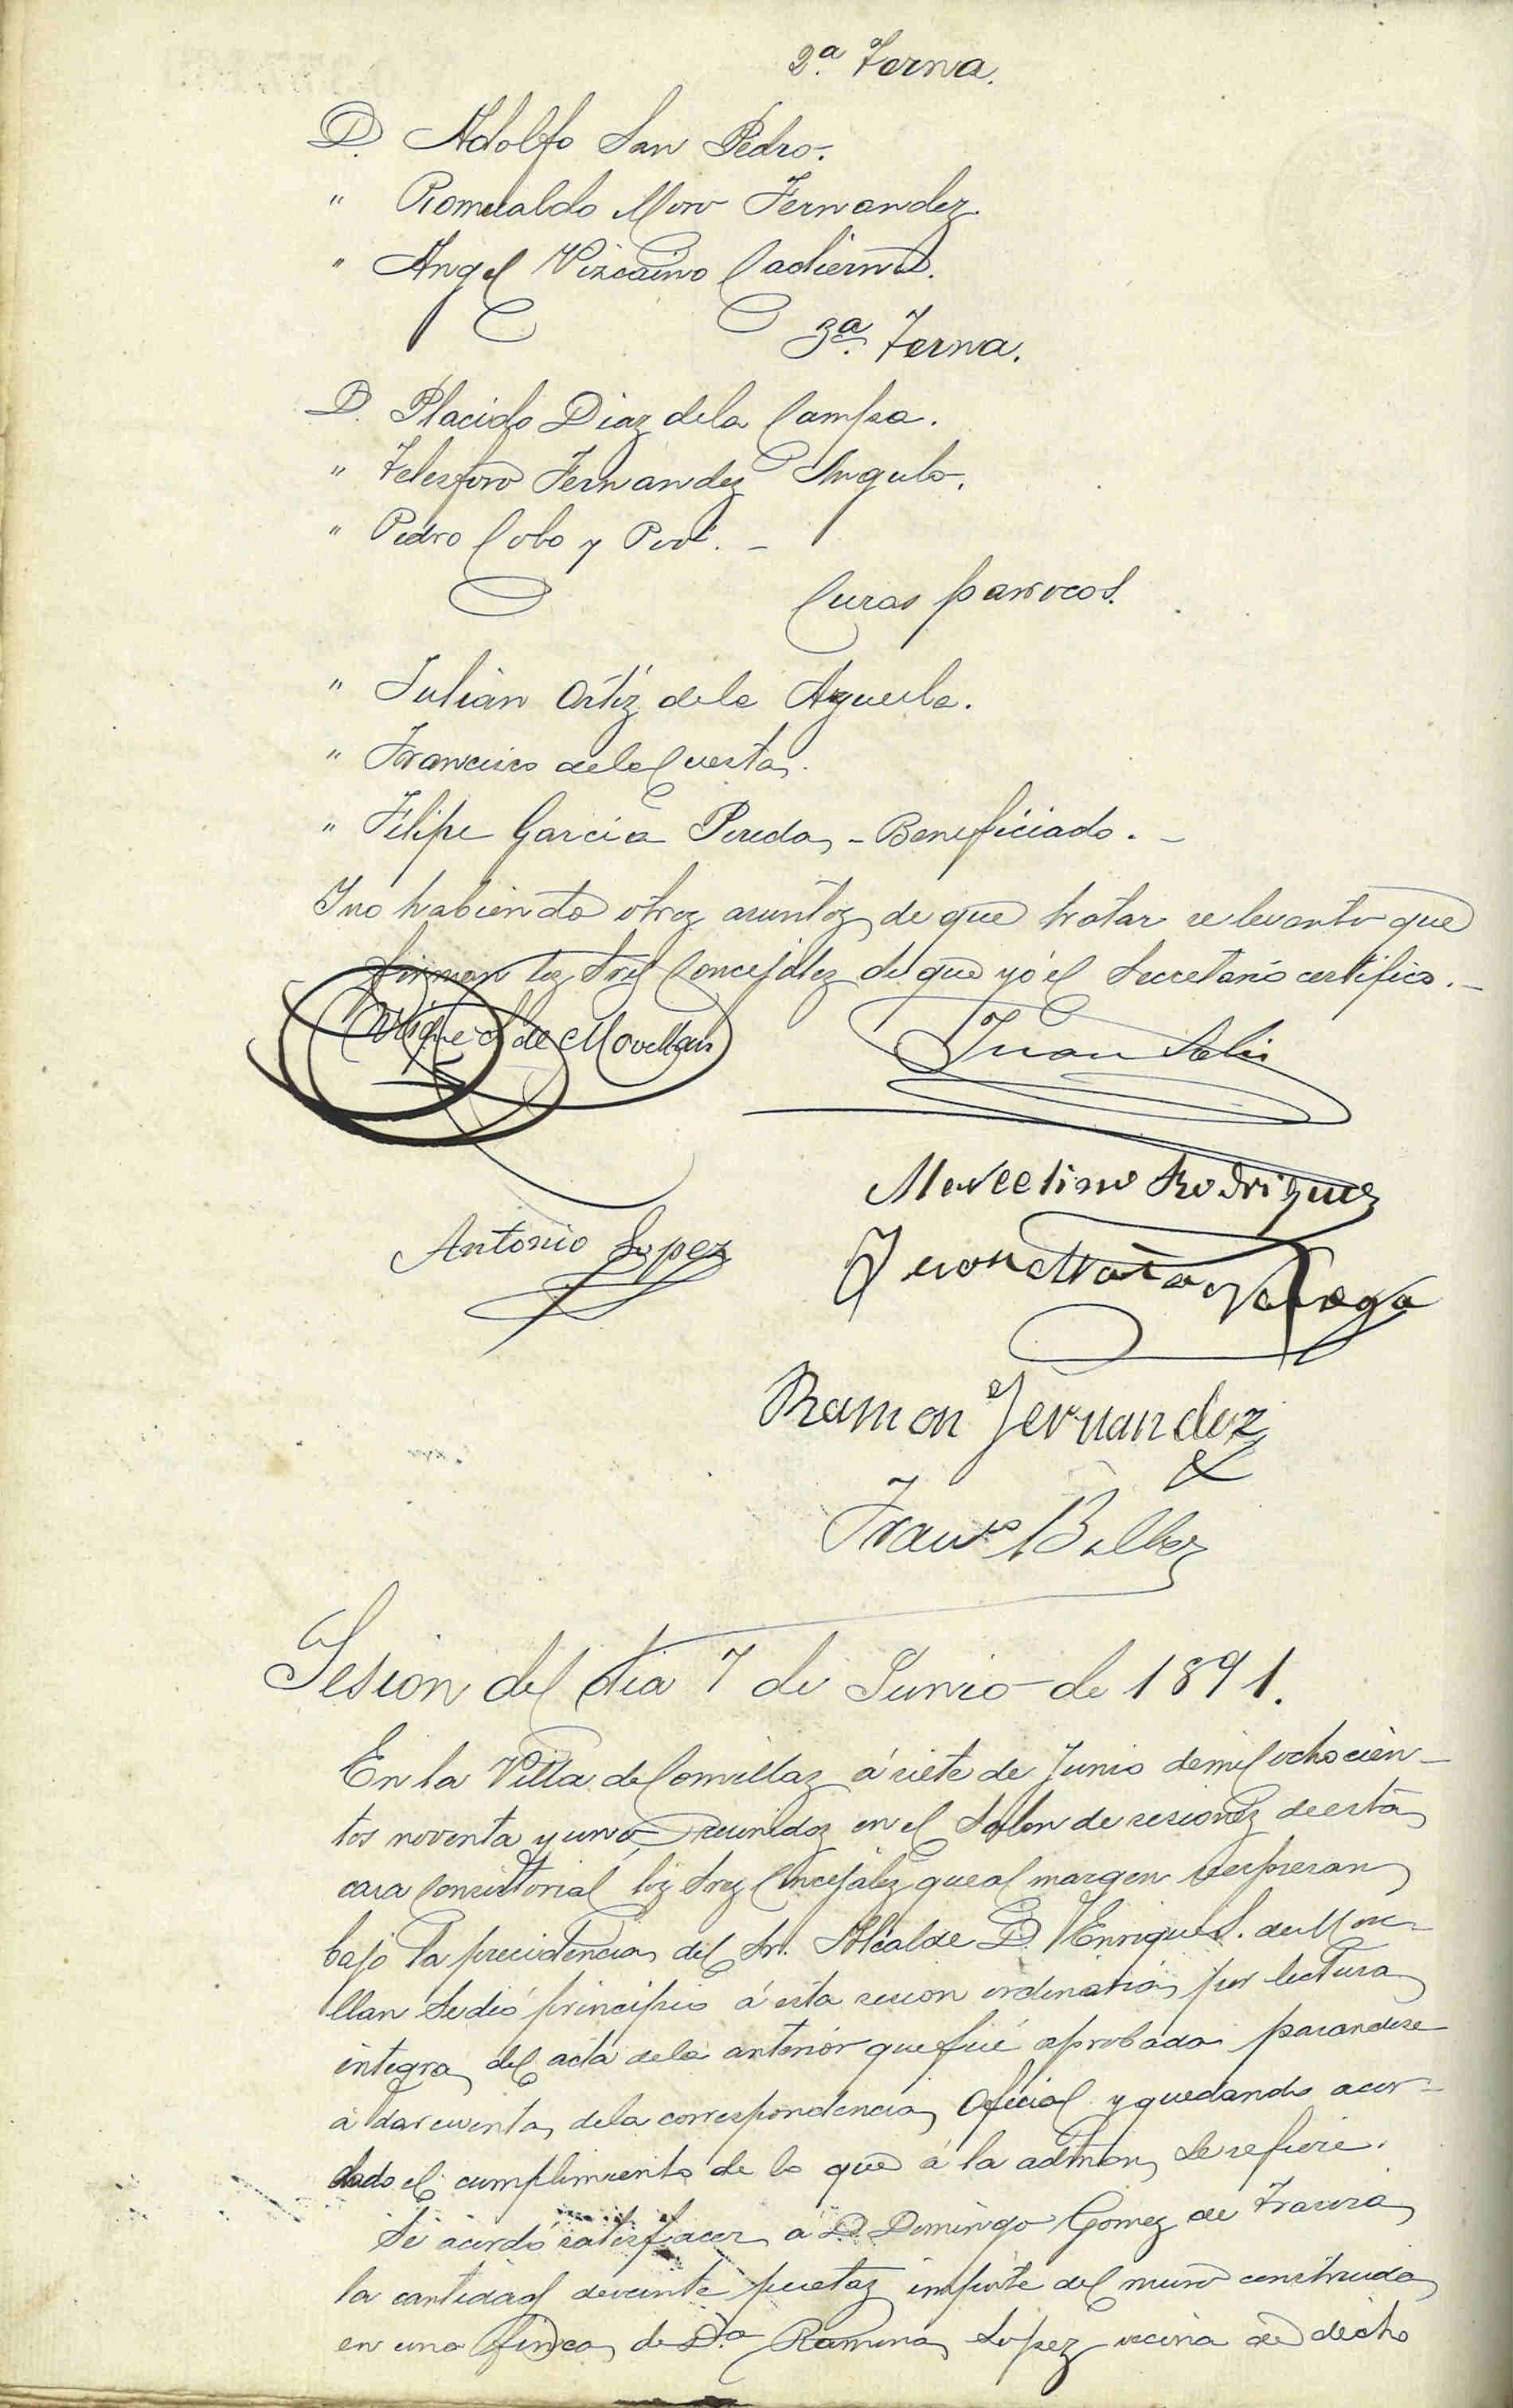 2.ª Terna.
D. Adolfo San Pedro.
" Romualdo Moro Fernandez.
" Angel Vizcaino Cadierno.
3ª. Terna.
D. Placido Diaz dela Campa.
" Telesforo Fernandez Angulo.
" Pedro Cobo y
Curas parrocos.
" Julián Ortíz dela Azuela.
" Francisco dela Cuesta.
" Felipe García Pereda, - Beneficiado. -
Y no habiendo otroz asuntoz de que tratar se levantó que
firman loz Srez Concejalez de que yo el Secretario certifico. -
Enrique S. de Movellan
Juan Solis
Marcelino Rodriguez
Antonio Lopez
Juan
Ramon Fernandez
Fran.co
Sesion del dia 7 de Junio de 1891.
En la Villa de Comillaz á siete de Junio demil ochocien-
tos noventa y uno, reunidoz en el Salon de sesionez de esta
casa Consistorial loz Srez Concejalez que al margen se espresan
bajo la precidencia del Sr. Alcalde D. Enrique S. de Move-
llan se dió principio á esta sesion ordinaria por lectura
integra del acta dela anteriór que fué aprobada pasandose
á dar cuenta dela correspondencia Oficial y quedando acor-
dado el cumplimiento de lo que á la admón se refiere.
Se acordó satisfacer á D. Domingo Gomez de Trasvia
la cantidad de veinte pesetaz importe del muro construido
en una finca de D.ª Ramona Lopez vecina de dicho